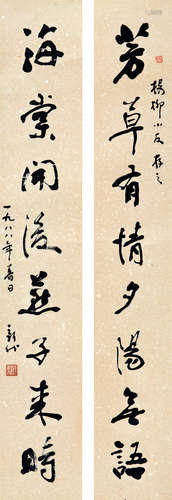 楊柳小友存之
芳草有情夕陽無語
海棠開後燕子來時
一九八八年春日